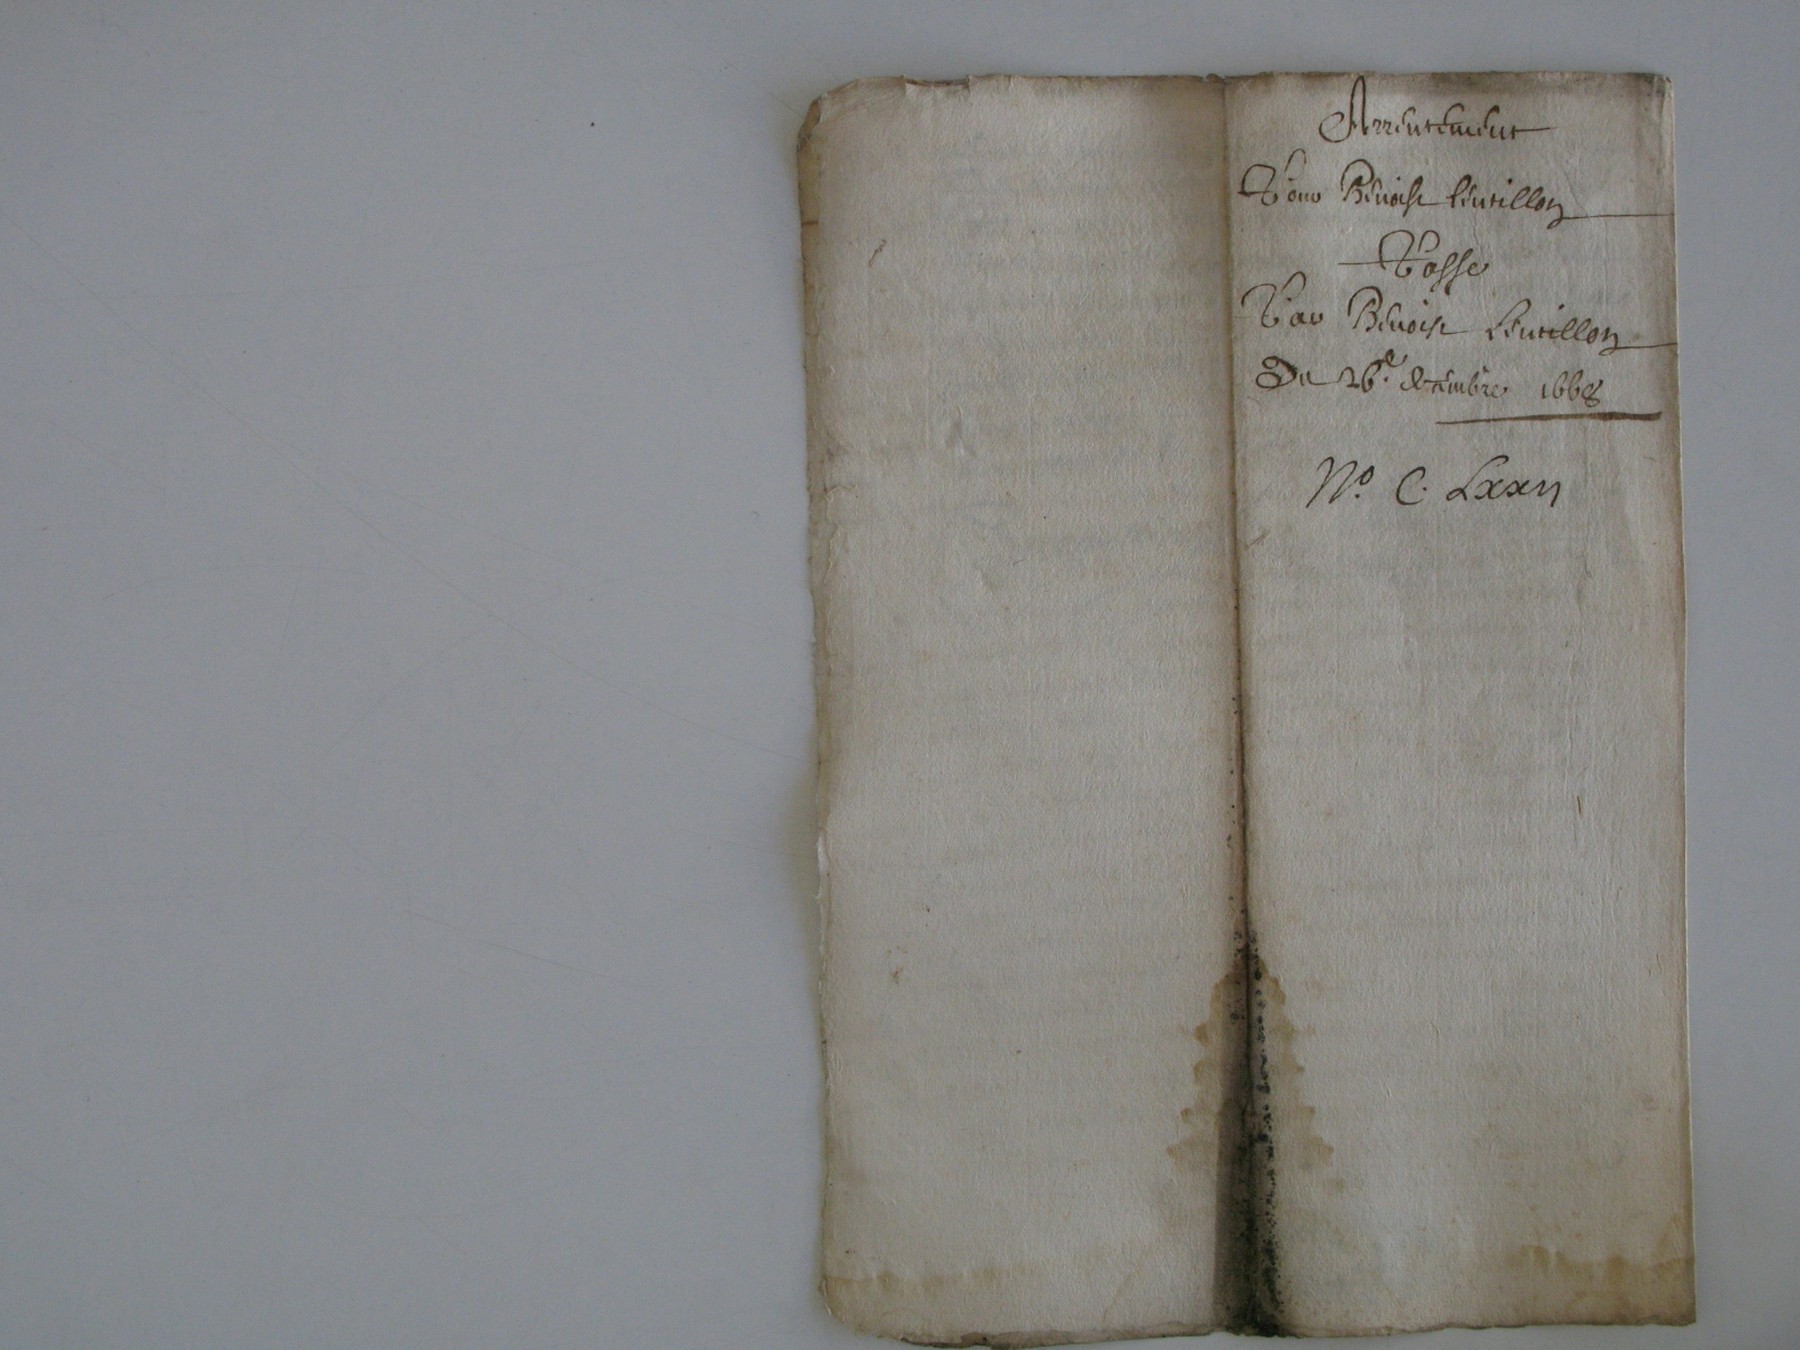 Arrentement
Pour Benoist Lentillon
Passe
Par Benoist Lentillon
Du 26e decembre 1668
No. C. Lxxii